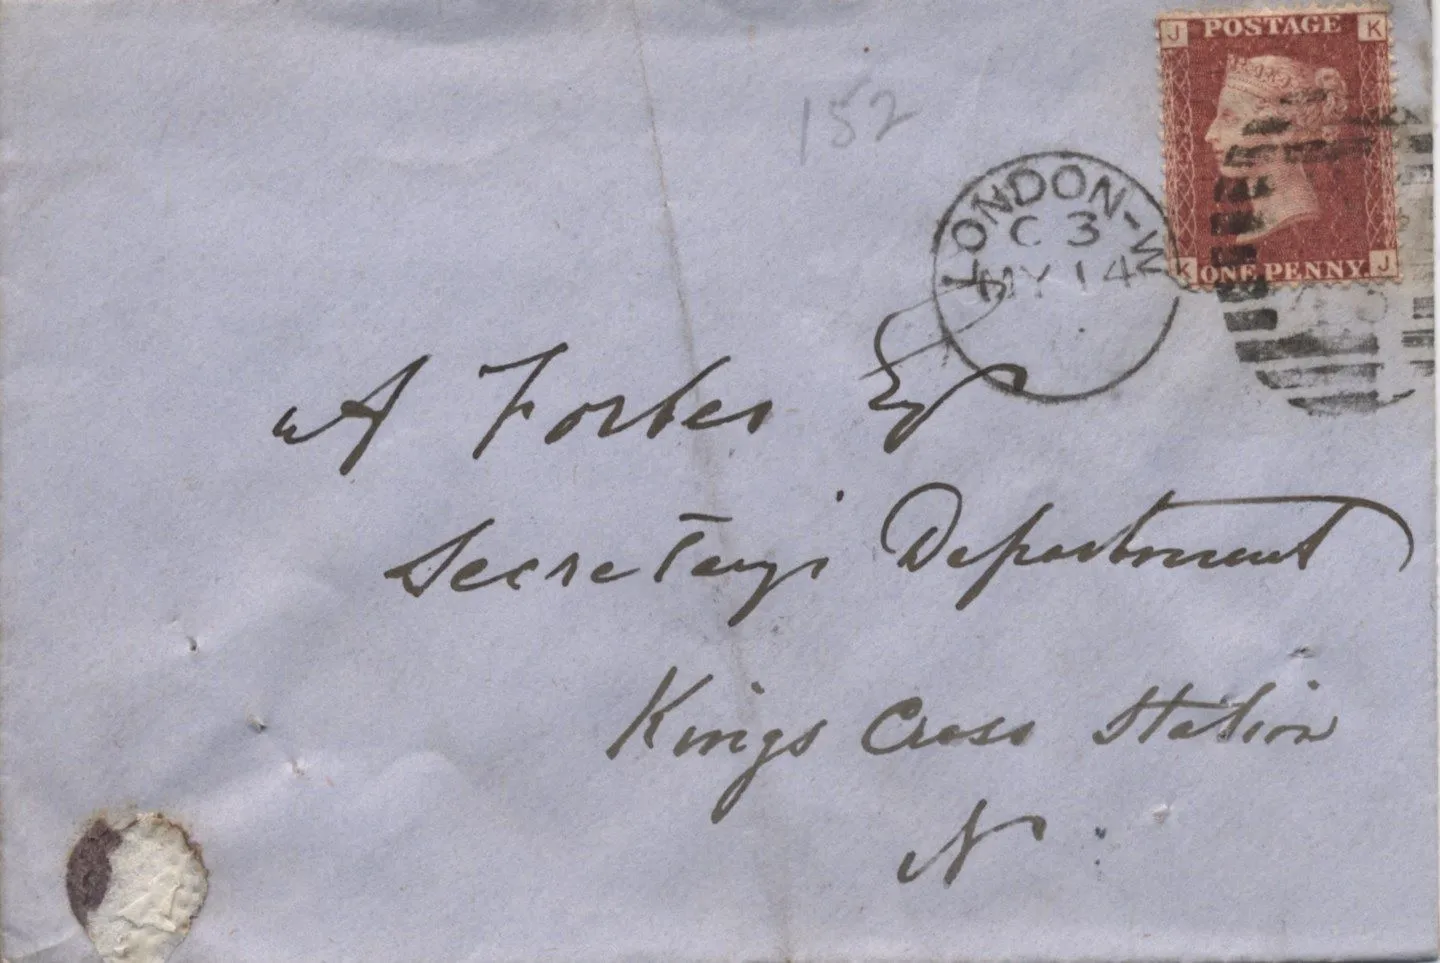 J POSTAGE K
K ONE PENNY J
152
LONDON-W
C 3
MY 14
A Forbes Esq
Secretary's Department
Kings Cross Station
N.